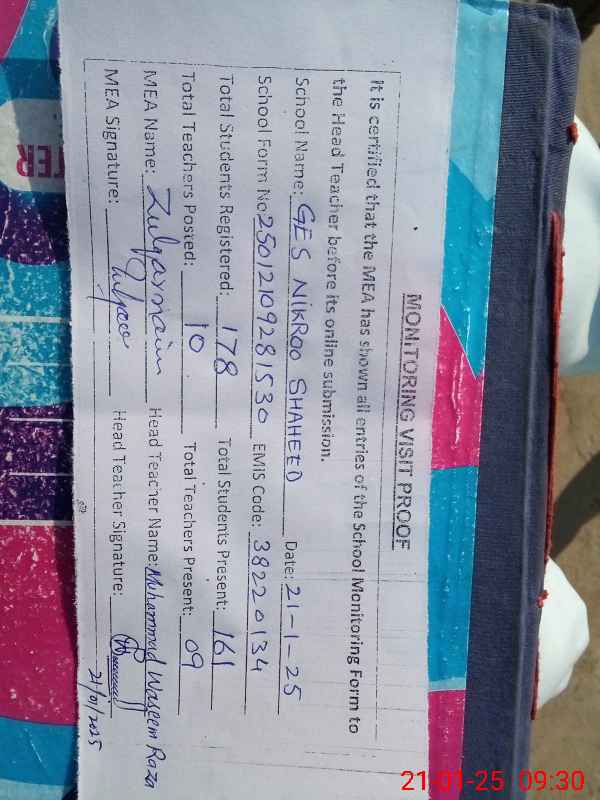 MONITORING VISIT PROOF
It is certified that the MEA has shown all entries of the School Monitoring Form to
the Head Teacher before its online submission.
School Name: GES NIKROO SHAHEED Date: 21-1-25
School Form No 25012109281530 EMIS Code: 38220134
Total Students Registered: 178 Total Students Present: 161
Total Teachers Posted: 10 Total Teachers Present: 09
MEA Name: Zulqarnain Head Teacher Name: Muhammad Waseem Raza
MEA Signature: Head Teacher Signature:
21/01/2025
TER
21-01-25 09:30